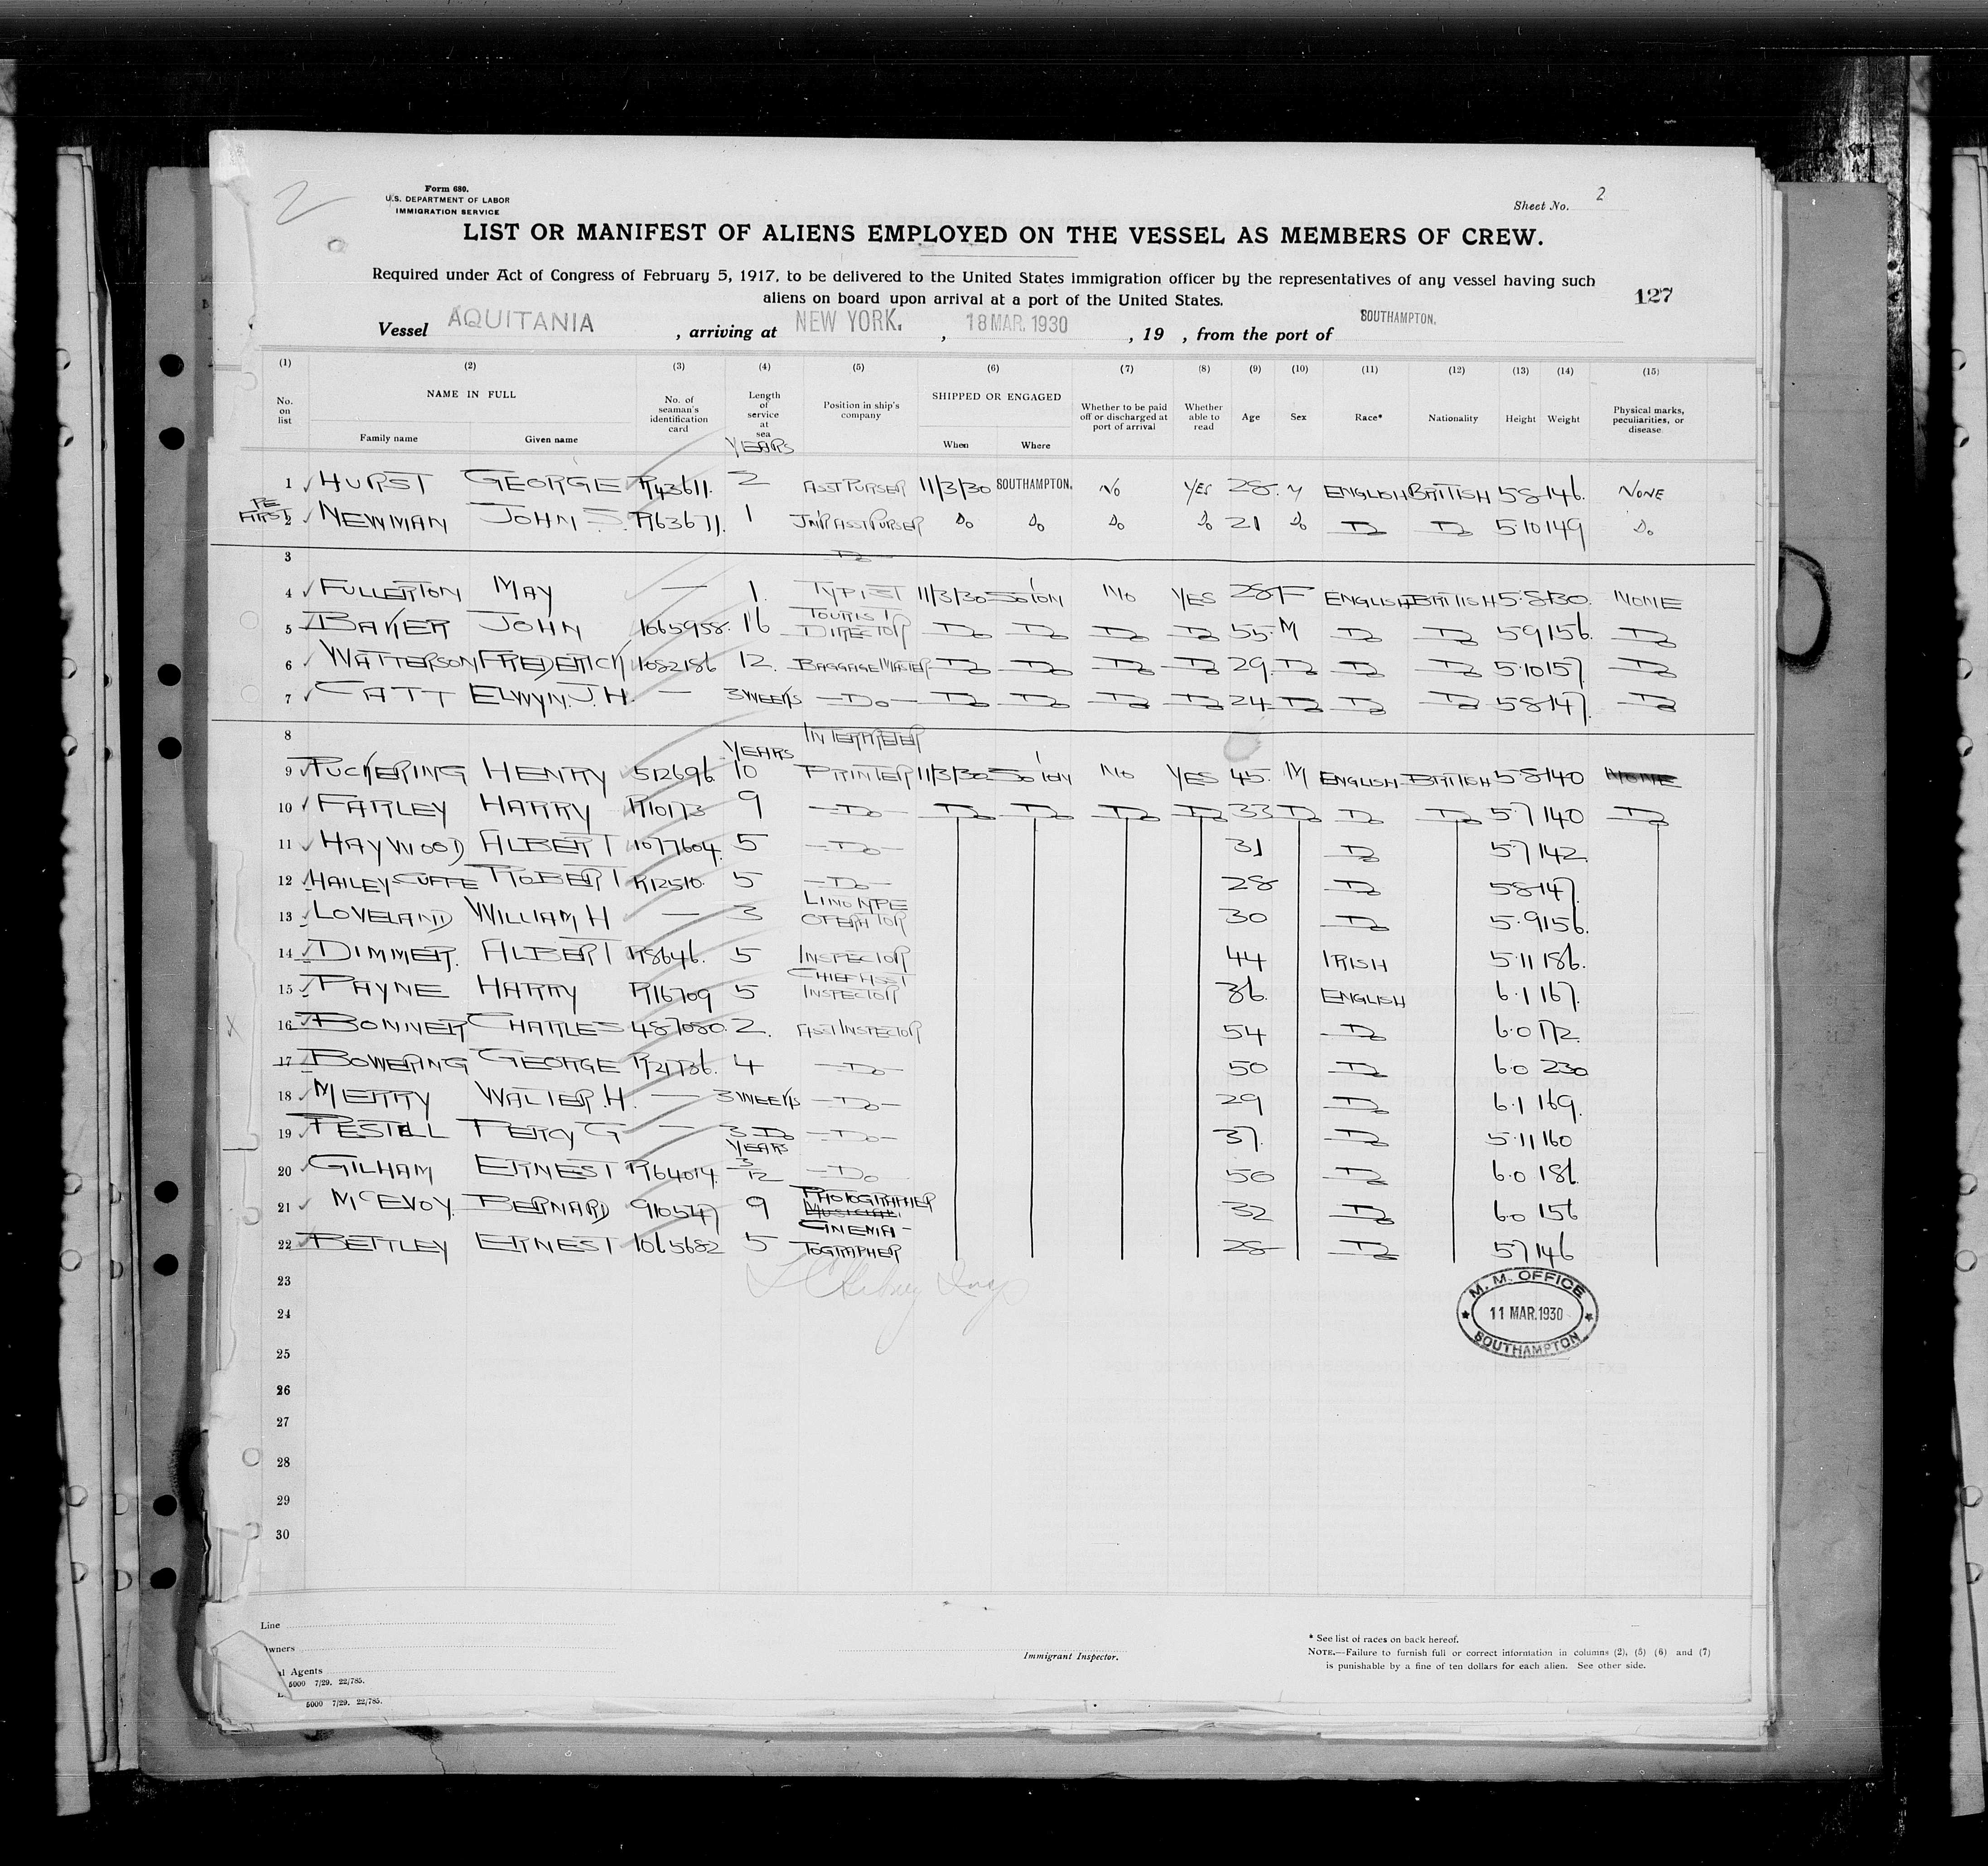 2
Form 680.
U.S. DEPARTMENT OF LABOR
IMMIGRATION SERVICE
Sheet No. 2
LIST OR MANIFEST OF ALIENS EMPLOYED ON THE VESSEL AS MEMBERS OF CREW.
Required under Act of Congress of February 5, 1917, to be delivered to the United States immigration officer by the representatives of any vessel having such
aliens on board upon arrival at a port of the United States.
127
Vessel AQUITANIA , arriving at NEW YORK. , 18 MAR. 1930 , 19 , from the port of SOUTHAMPTON.
(1) (2) (3) (4) (5) (6) (7) (8) (9) (10) (11) (12) (13) (14) (15)
No. on list NAME IN FULL Family name Given name No. of seaman's identification card Length of service at sea Position in ship's company SHIPPED OR ENGAGED When Where Whether to be paid off or discharged at port of arrival Whether able to read Age Sex Race* Nationality Height Weight Physical marks, peculiarities, or disease
YEARS
1 HURST GEORGE R43611. 2 ASST PURSER 11/3/30 SOUTHAMPTON. NO YES 28. M ENGLISH BRITISH 5·8 146. NONE
FIRST
2 NEWMAN JOHN S. R63671. 1 JNR ASST PURSER Do Do Do Do 21 Do Do Do 5·10 149 Do
3 Do
4 FULLERTON MAY — 1. TYPIST 11/3/30 SO'TON NO YES 28 F ENGLISH BRITISH 5·8 130. NONE
5 BAKER JOHN 1065958. 16 TOURIST DIRECTOR Do Do Do Do 55. M Do Do 5·9 156. Do
6 WATTERSON FREDERICK 1082186 12. BAGGAGE MASTER Do Do Do Do 29. Do Do Do 5·10 157. Do
7 CATT ELWYN. J. H. — 3 WEEKS Do Do Do Do Do 24 Do Do Do 5·8 147. Do
8 INTERPRETER
YEARS
9 PUCKERING HENRY 512696 10 PRINTER 11/3/30 SO'TON NO YES 45. M ENGLISH BRITISH 5·8 140 NONE
10 FARLEY HARRY R10173 9 Do Do Do Do Do 33 Do Do Do 5·7 140 Do
11 HAYWOOD ALBERT 1077604. 5 Do 31 Do 5·7 142.
12 HAILEY CUFFE ROBERT R12510. 5 Do 28 Do 5·8 147.
13 LOVELAND WILLIAM H — 3 LINOTYPE OPERATOR 30 Do 5·9 156.
14 DIMMER. ALBERT R8646. 5 INSPECTOR 44 IRISH 5·11 186.
15 PAYNE HARRY R16709 5 CHIEF ASST INSPECTOR 36. ENGLISH 6·1 167.
X
16 BONNER CHARLES 487080. 2. ASST INSPECTOR 54 Do 6·0 172.
17 BOWERING GEORGE R21736. 4 Do 50 Do 6·0 230
18 MERRY WALTER. H. — 3 WEEKS Do 29 Do 6·1 169.
19 PESTELL PERCY G — 3 Do Do 37. Do 5·11 160
YEARS
20 GILHAM ERNEST R64014. 3/12 Do 50 Do 6·0 186.
21 McEVOY. BERNARD 910547 9 PHOTOGRAPHER MUSICIAN. 32 Do 6·0 156
22 BETTLEY ERNEST 1065682 5 CINEMA-TOGRAPHER 28 Do 5·7 146
23
24
25
26
27
28
29
30
M. M. OFFICE
11 MAR. 1930
SOUTHAMPTON
Line
Owners
Agents
5000 7/29. 22/785.
5000 7/29. 22/785.
Immigrant Inspector.
* See list of races on back hereof.
NOTE.—Failure to furnish full or correct information in columns (2), (5) (6) and (7)
is punishable by a fine of ten dollars for each alien. See other side.